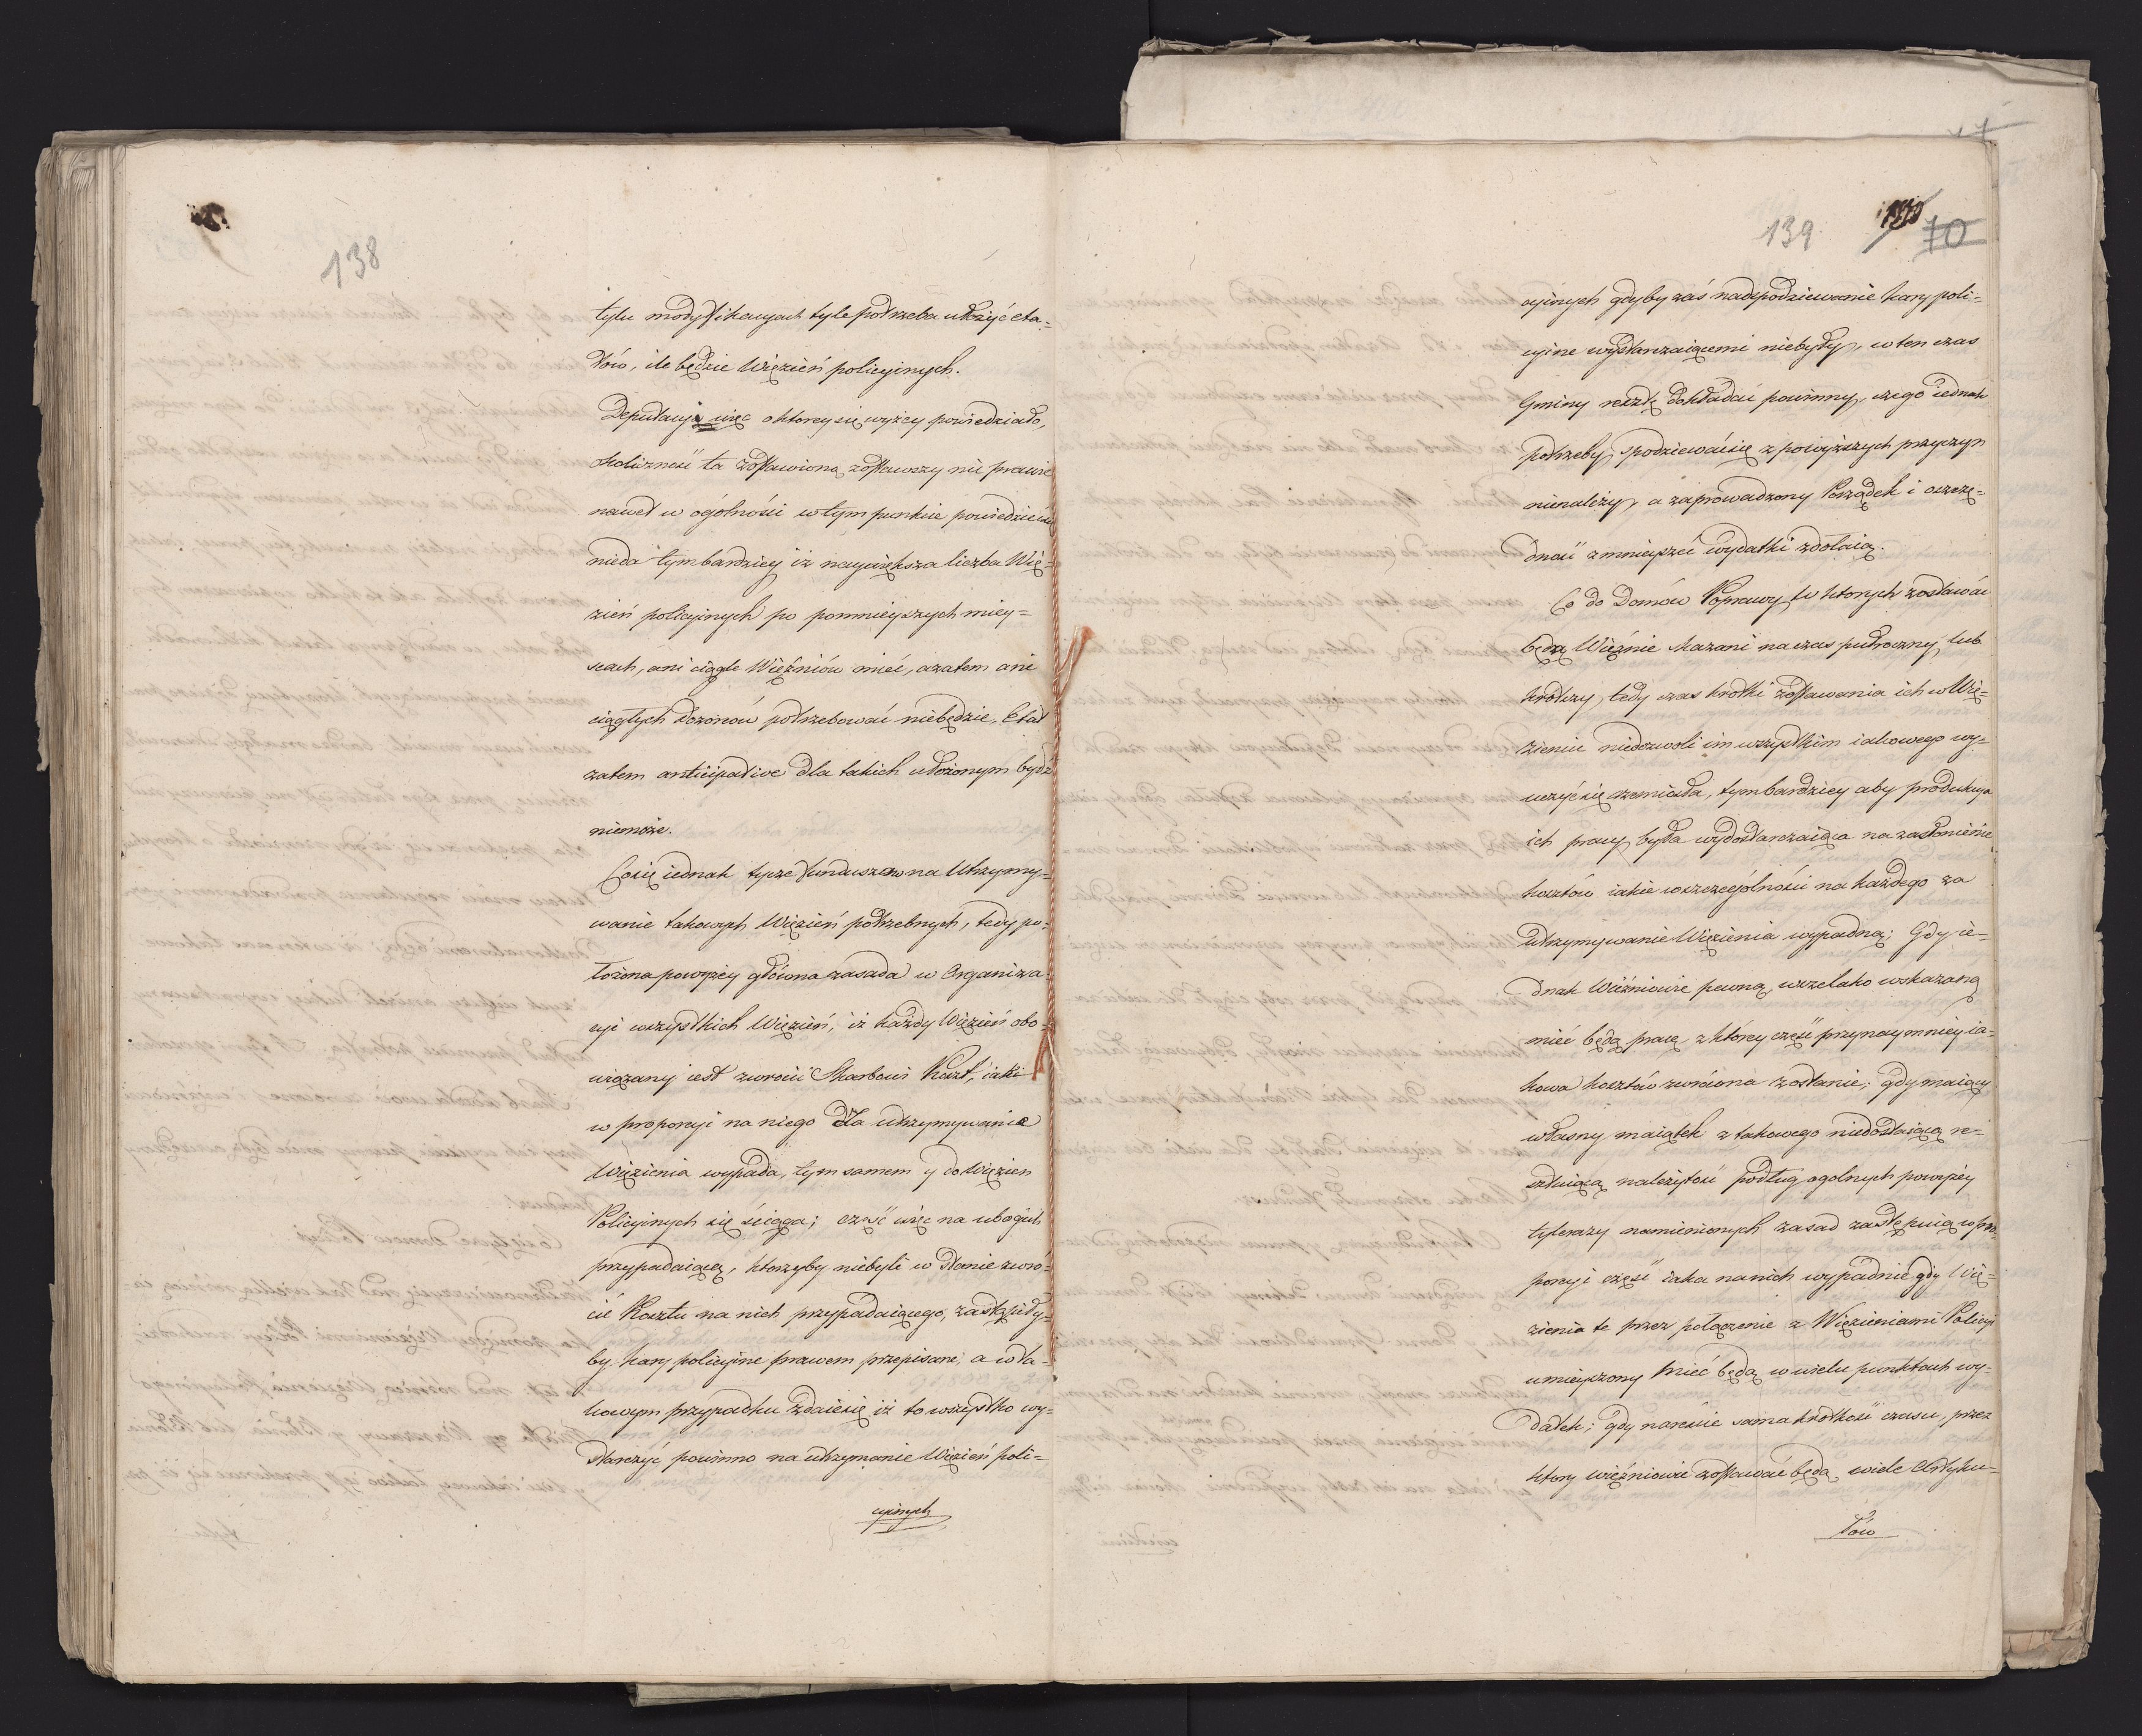 138
tylu modyfikacyach tyle potrzeba ułożyć eta=
tów, ile będzie Więzień policyinych.
Deputacyi więc o ktorey się wyżey powiedziało,
okoliczność ta zostawioną zostawszy nic prawie
nawet w ogólności w tym punkcie powiedzieć się
nieda tymbardziey iż naywiększa liczba Wię=
zień policyinych po pomnieyszych miey=
scach, ani ciągle Więźniów mieć, a zatem ani
ciągłych dozorów potrzebować niebędzie, Etat
zatem anticipative dla takich ułożonym bydź
niemoże.
Co się iednak tycze funduszow na Utrzymy=
wanie takowych Więzień potrzebnych, tedy po=
łożona powyżey główna zasada w Organiza=
cyi wszystkich Więzień, iż każdy Więzień obo=
wiązany iest zwrocić Skarbowi Koszt, iaki
w proporcyi na niego dla utrzymywania
Więzienia wypada, tym samem y do Więzien
Policyinych się ściąga; część więc na ubogich
przypadaiącą, ktorzyby niebyli w stanie zwró=
cić Kosztu na nich przypadaiącego, zastąpiły=
by kary policyine prawem przepisane; a w ta=
kowym przypadku zdaie się iż to wszystko wy=
starczyć powinno na utrzymanie Więzień poli=
cyinych
139
70
cyinych gdyby zaś nadspodziewanie kary poli=
cyine wystarczaiącemi niebyły, w ten czas
Gminy resztę dokładać powinny, czego iednak
potrzeby, spodziewać się z powyższych przyczyn
nienależy, a zaprowadzony Porządek i oszczę=
dność zmnieyszeć wydatki zdołaią.
Co do Domów Poprawy, w ktorych zostawać
będą Więźnie skazani na czas pułroczny, lub
krótszy, tedy czas krotki zostawania ich w Wię=
zieniu niedozwoli im wszystkim iakowego wy=
uczyć się rzemiosła, tymbardziey aby produkcya
ich pracy była wydostarczaiąca na zasłonienie
kosztów iakie w szczególności na każdego za
Utrzymywanie Więzienia wypadną; Gdy ie=
dnak Więźniowie pewną, wszelako wskazaną
mieć będą pracę z ktorey część przynaymniey ia=
kowa kosztów zwrócona zostanie; gdy maiący
własny maiątek z takowego niedostaiącą re=
sztuiącą należytość podług ogolnych powyżey
tylerazy namienionych zasad zastępuią w pro=
porcyi część iaka na nich wypadnie gdy Wię=
zienia te przez połączenie z Więzieniami Policyi
umieyszony mieć będą w wielu punktach wy=
datek; gdy nareście sama krótkość czasu, przez
ktory więźniowie zostawać będą, wiele Artyku=
łów